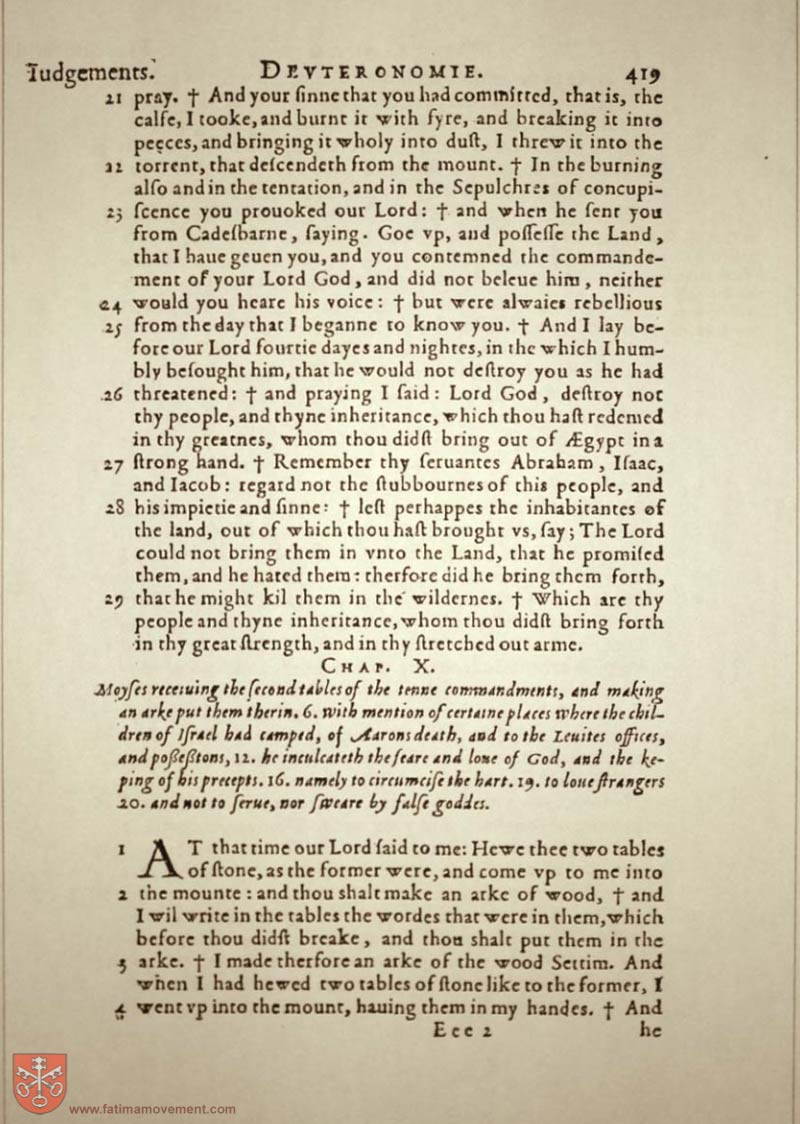 Iudgements. DEVTERONOMIE. 419
21 pray. † And your ſinne that you had committed, that is, the
calfe, I tooke, and burnt it with fyre, and breaking it into
peeces, and bringing it wholy into duſt, I threw it into the
22 torrent, that deſcendeth from the mount. † In the burning
alſo and in the tentation, and in the Sepulchres of concupi-
23 ſcence you prouoked our Lord: † and when he ſent you
from Cadeſbarne, ſaying. Goe vp, and poſſeſſe the Land,
that I haue geuen you, and you contemned the commande-
ment of your Lord God, and did not beleue him, neither
24 would you heare his voice: † but were alwaies rebellious
25 from the day that I beganne to know you. † And I lay be-
fore our Lord fourtie dayes and nightes, in the which I hum-
bly beſought him, that he would not deſtroy you as he had
26 threatened: † and praying I ſaid: Lord God, deſtroy not
thy people, and thyne inheritance, which thou haſt redemed
in thy greatnes, whom thou didſt bring out of Ægypt in a
27 ſtrong hand. † Remember thy ſeruantes Abraham, Iſaac,
and Iacob: regard not the ſtubbournes of this people, and
28 his impietie and ſinne: † leſt perhappes the inhabitantes of
the land, out of which thou haſt brought vs, ſay; The Lord
could not bring them in vnto the Land, that he promiſed
them, and he hated them: therfore did he bring them forth,
29 that he might kil them in the wildernes. † Which are thy
people and thyne inheritance, whom thou didſt bring forth
in thy great ſtrength, and in thy ſtretched out arme.
CHAP. X.
Moyſes receiuing the ſecond tables of the tenne commandments, and making
an arke put them therin. 6. with mention of certaine places where the chil-
dren of Iſrael had camped, of Aarons death, and to the Leuites offices,
and poßeßions, 12. he inculcateth the feare and loue of God, and the ke-
ping of his precepts. 16. namely to circumciſe the hart. 19. to loue ſtrangers
20. and not to ſerue, nor ſweare by falſe goddes.
1 AT that time our Lord ſaid to me: Hewe thee two tables
of ſtone, as the former were, and come vp to me into
2 the mounte: and thou shalt make an arke of wood, † and
I wil write in the tables the wordes that were in them, which
before thou didſt breake, and thou shalt put them in the
3 arke. † I made therfore an arke of the wood Settim. And
when I had hewed two tables of ſtone like to the former, I
4 went vp into the mount, hauing them in my handes. † And
Eee 2 he
www.fatimamovement.com